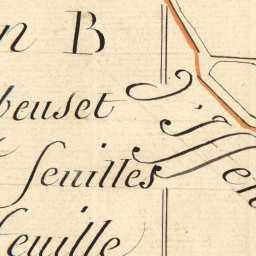 n B
beuset
feuilles
feuille
d'Issen